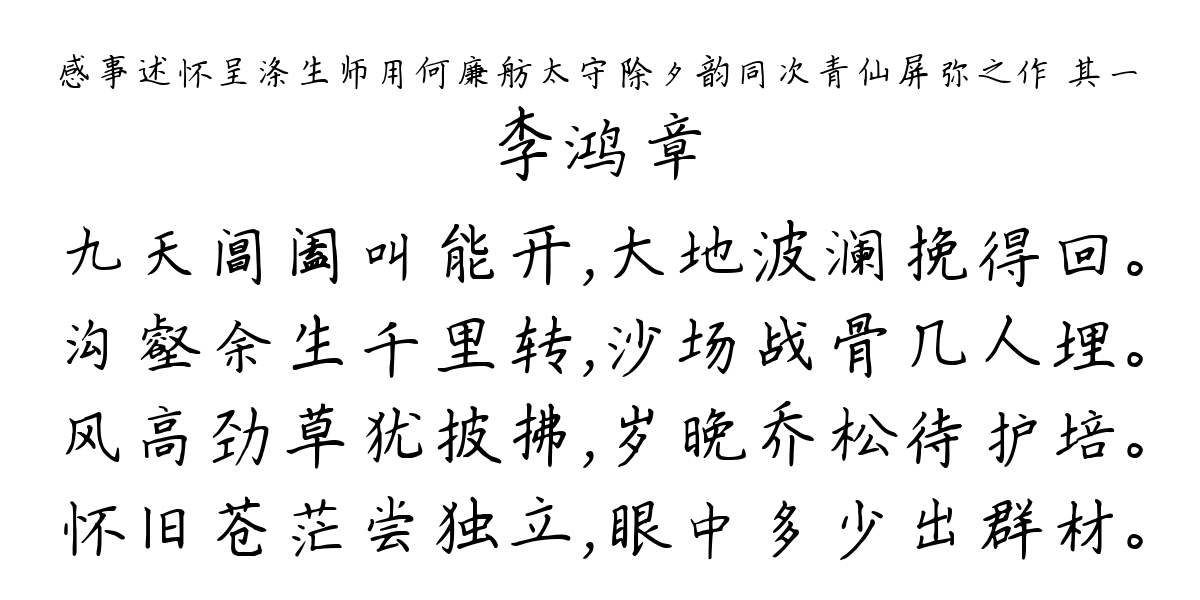 感事述怀呈涤生师用何廉舫太守除夕韵同次青仙屏弥之作 其一
李鸿章
九天阊阖叫能开,大地波澜挽得回。
沟壑余生千里转,沙场战骨几人埋。
风高劲草犹披拂,岁晚乔松待护培。
怀旧苍茫尝独立,眼中多少出群材。